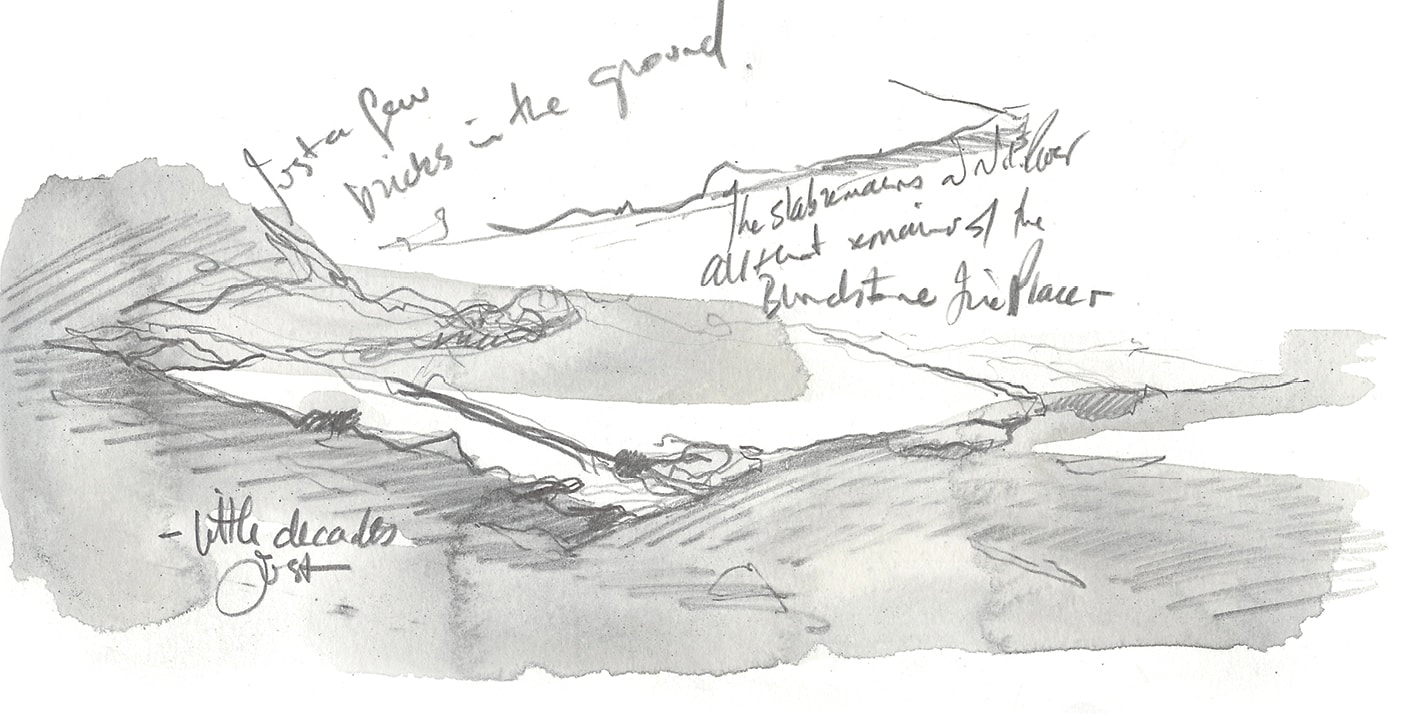 Just a few
bricks in the ground.
The slab remains
all that remains of the
Blundstone Fire Place
- little decades
Just